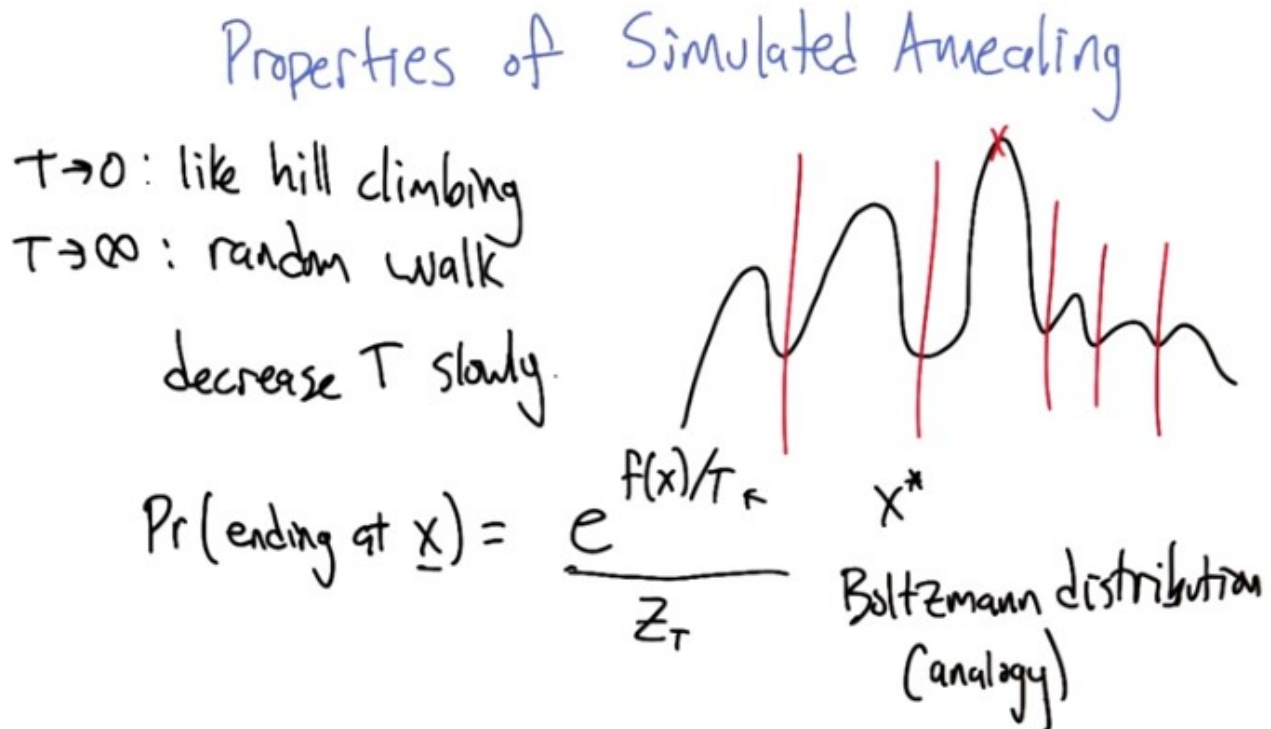 Properties of Simulated Annealing
T→0: like hill climbing
T→∞: random walk
decrease T slowly.
Pr(ending at x) = e^{f(x)/T} / Z_T
x*
Boltzmann distribution
(analogy)